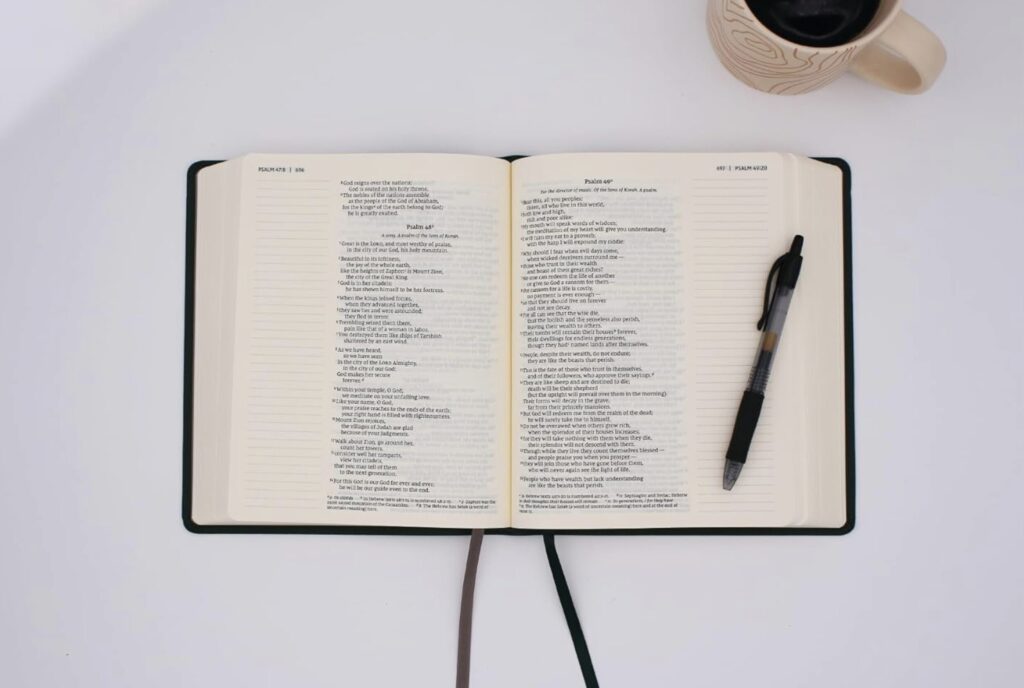 PSALM 47:8 | 696
⁸God reigns over the nations;
God is seated on his holy throne.
⁹The nobles of the nations assemble
as the people of the God of Abraham,
for the kingsᵃ of the earth belong to God;
he is greatly exalted.
Psalm 48ᵇ
A song. A psalm of the Sons of Korah.
¹Great is the LORD, and most worthy of praise,
in the city of our God, his holy mountain.
²Beautiful in its loftiness,
the joy of the whole earth,
like the heights of Zaphonᶜ is Mount Zion,
the city of the Great King.
³God is in her citadels;
he has shown himself to be her fortress.
⁴When the kings joined forces,
when they advanced together,
⁵they saw her and were astounded;
they fled in terror.
⁶Trembling seized them there,
pain like that of a woman in labor.
⁷You destroyed them like ships of Tarshish
shattered by an east wind.
⁸As we have heard,
so we have seen
in the city of the LORD Almighty,
in the city of our God:
God makes her secure
forever.ᵈ
⁹Within your temple, O God,
we meditate on your unfailing love.
¹⁰Like your name, O God,
your praise reaches to the ends of the earth;
your right hand is filled with righteousness.
¹¹Mount Zion rejoices,
the villages of Judah are glad
because of your judgments.
¹²Walk about Zion, go around her,
count her towers,
¹³consider well her ramparts,
view her citadels,
that you may tell of them
to the next generation.
¹⁴For this God is our God for ever and ever;
he will be our guide even to the end.
697 | PSALM 49:20
Psalm 49ᵃ
For the director of music. Of the Sons of Korah. A psalm.
¹Hear this, all you peoples;
listen, all who live in this world,
²both low and high,
rich and poor alike:
³My mouth will speak words of wisdom;
the meditation of my heart will give you understanding.
⁴I will turn my ear to a proverb;
with the harp I will expound my riddle:
⁵Why should I fear when evil days come,
when wicked deceivers surround me—
⁶those who trust in their wealth
and boast of their great riches?
⁷No one can redeem the life of another
or give to God a ransom for them—
⁸the ransom for a life is costly,
no payment is ever enough—
⁹so that they should live on forever
and not see decay.
¹⁰For all can see that the wise die,
that the foolish and the senseless also perish,
leaving their wealth to others.
¹¹Their tombs will remain their housesᵇ forever,
their dwellings for endless generations,
though they hadᶜ named lands after themselves.
¹²People, despite their wealth, do not endure;
they are like the beasts that perish.
¹³This is the fate of those who trust in themselves,
and of their followers, who approve their sayings.ᵈ
¹⁴They are like sheep and are destined to die;
death will be their shepherd
(but the upright will prevail over them in the morning).
Their forms will decay in the grave,
far from their princely mansions.
¹⁵But God will redeem me from the realm of the dead;
he will surely take me to himself.
¹⁶Do not be overawed when others grow rich,
when the splendor of their houses increases;
¹⁷for they will take nothing with them when they die,
their splendor will not descend with them.
¹⁸Though while they live they count themselves blessed—
and people praise you when you prosper—
¹⁹they will join those who have gone before them,
who will never again see the light of life.
²⁰People who have wealth but lack understanding
are like the beasts that perish.